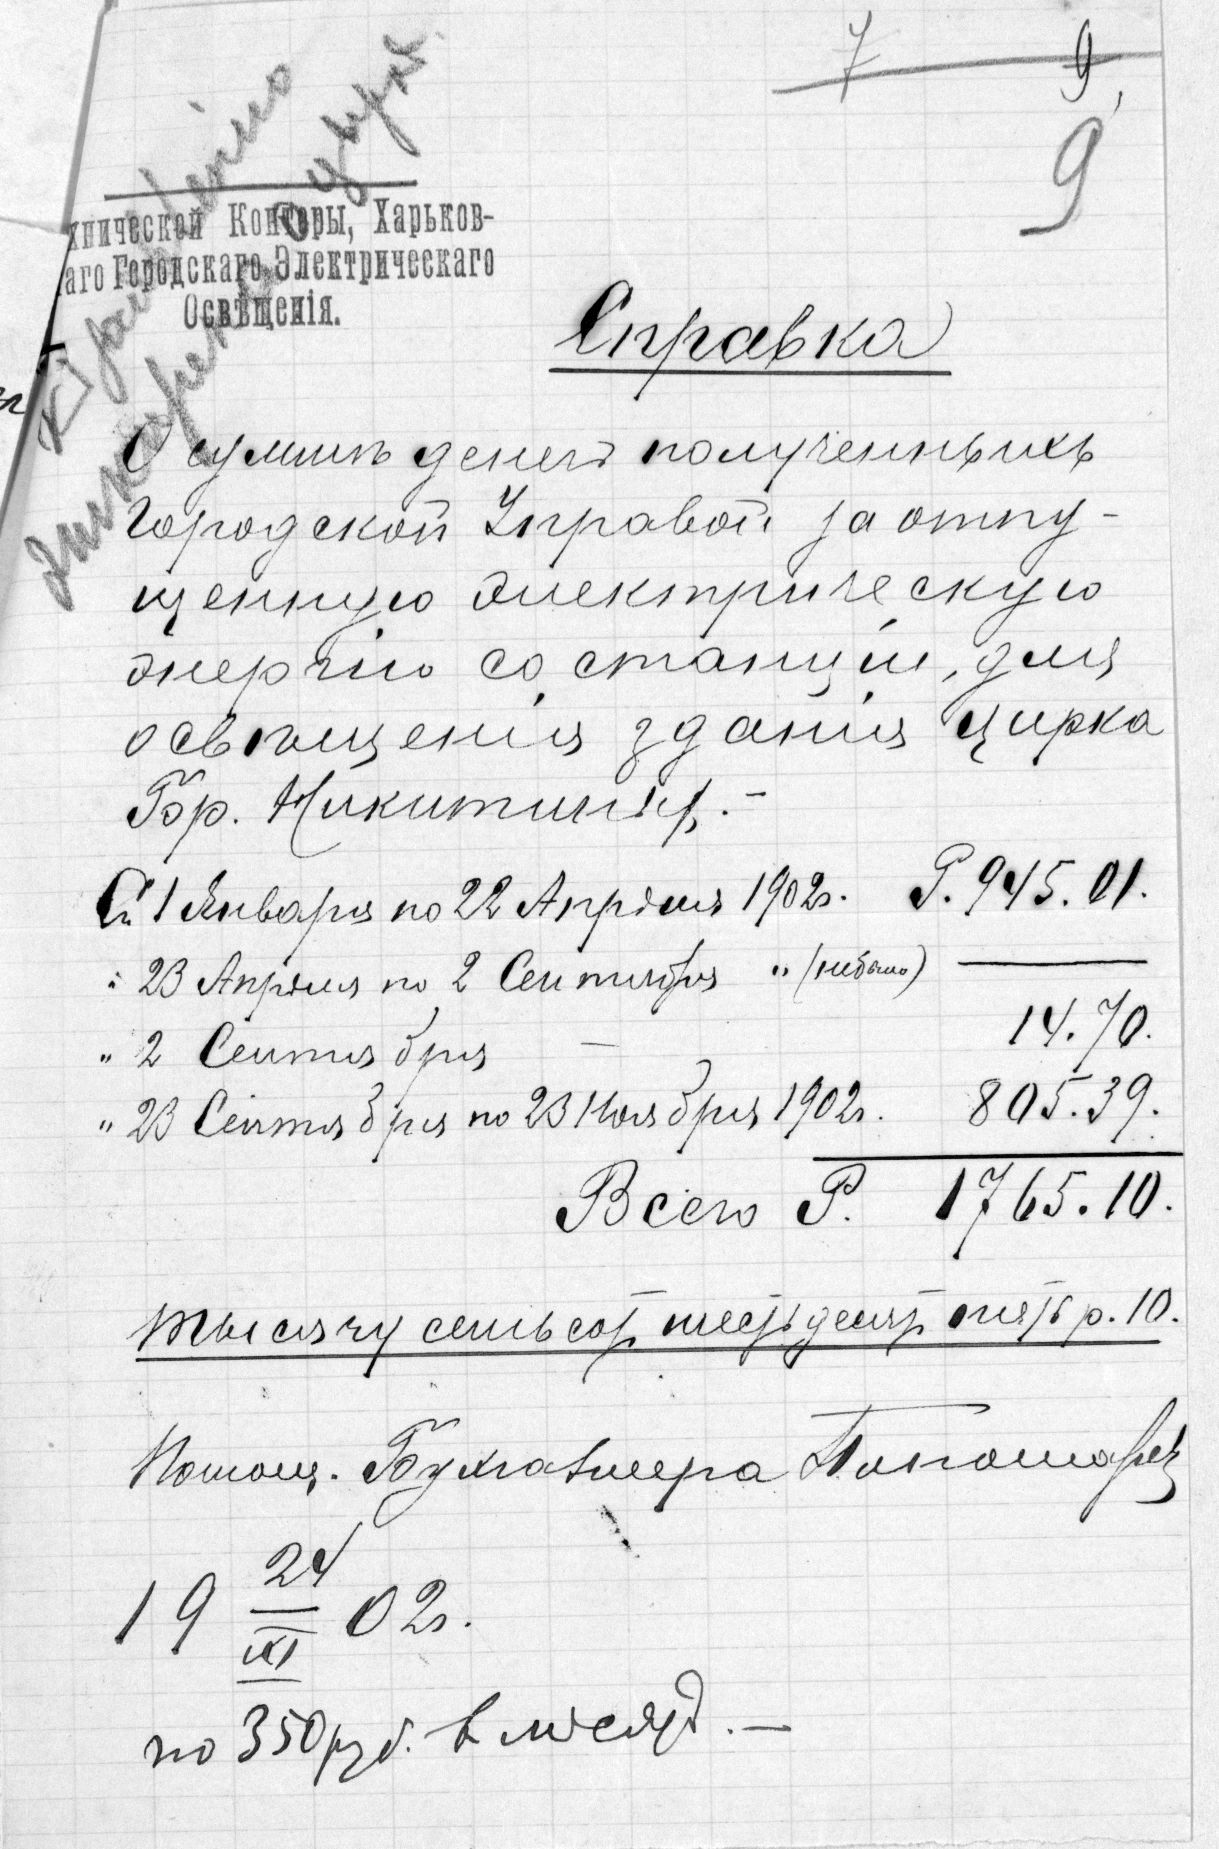 7 9
9
хнической Конторы, Харьков-
аго Городскаго Электрическаго
Освѣщенія.
Справка
О суммѣ денегъ полученныхъ
Городской Управой за отпу-
щенную электрическую
энергію со станціи, для
освѣщенія зданія цирка
Бр. Никитиныхъ. –
Съ 1 Января по 22 Апрѣля 1902г. Р. 945.01.
" 23 Апрѣля по 2 Сентября " (небыло) —
" 2 Сентября — 14.70.
" 23 Сентября по 23 Ноября 1902г. 805.39.
Всего Р. 1765.10.
Тысячу семьсот шестьдесят пять р. 10.
Помощ. Бухгалтера
19 24/XI 02г.
по 350 руб. в мѣсяцъ. —